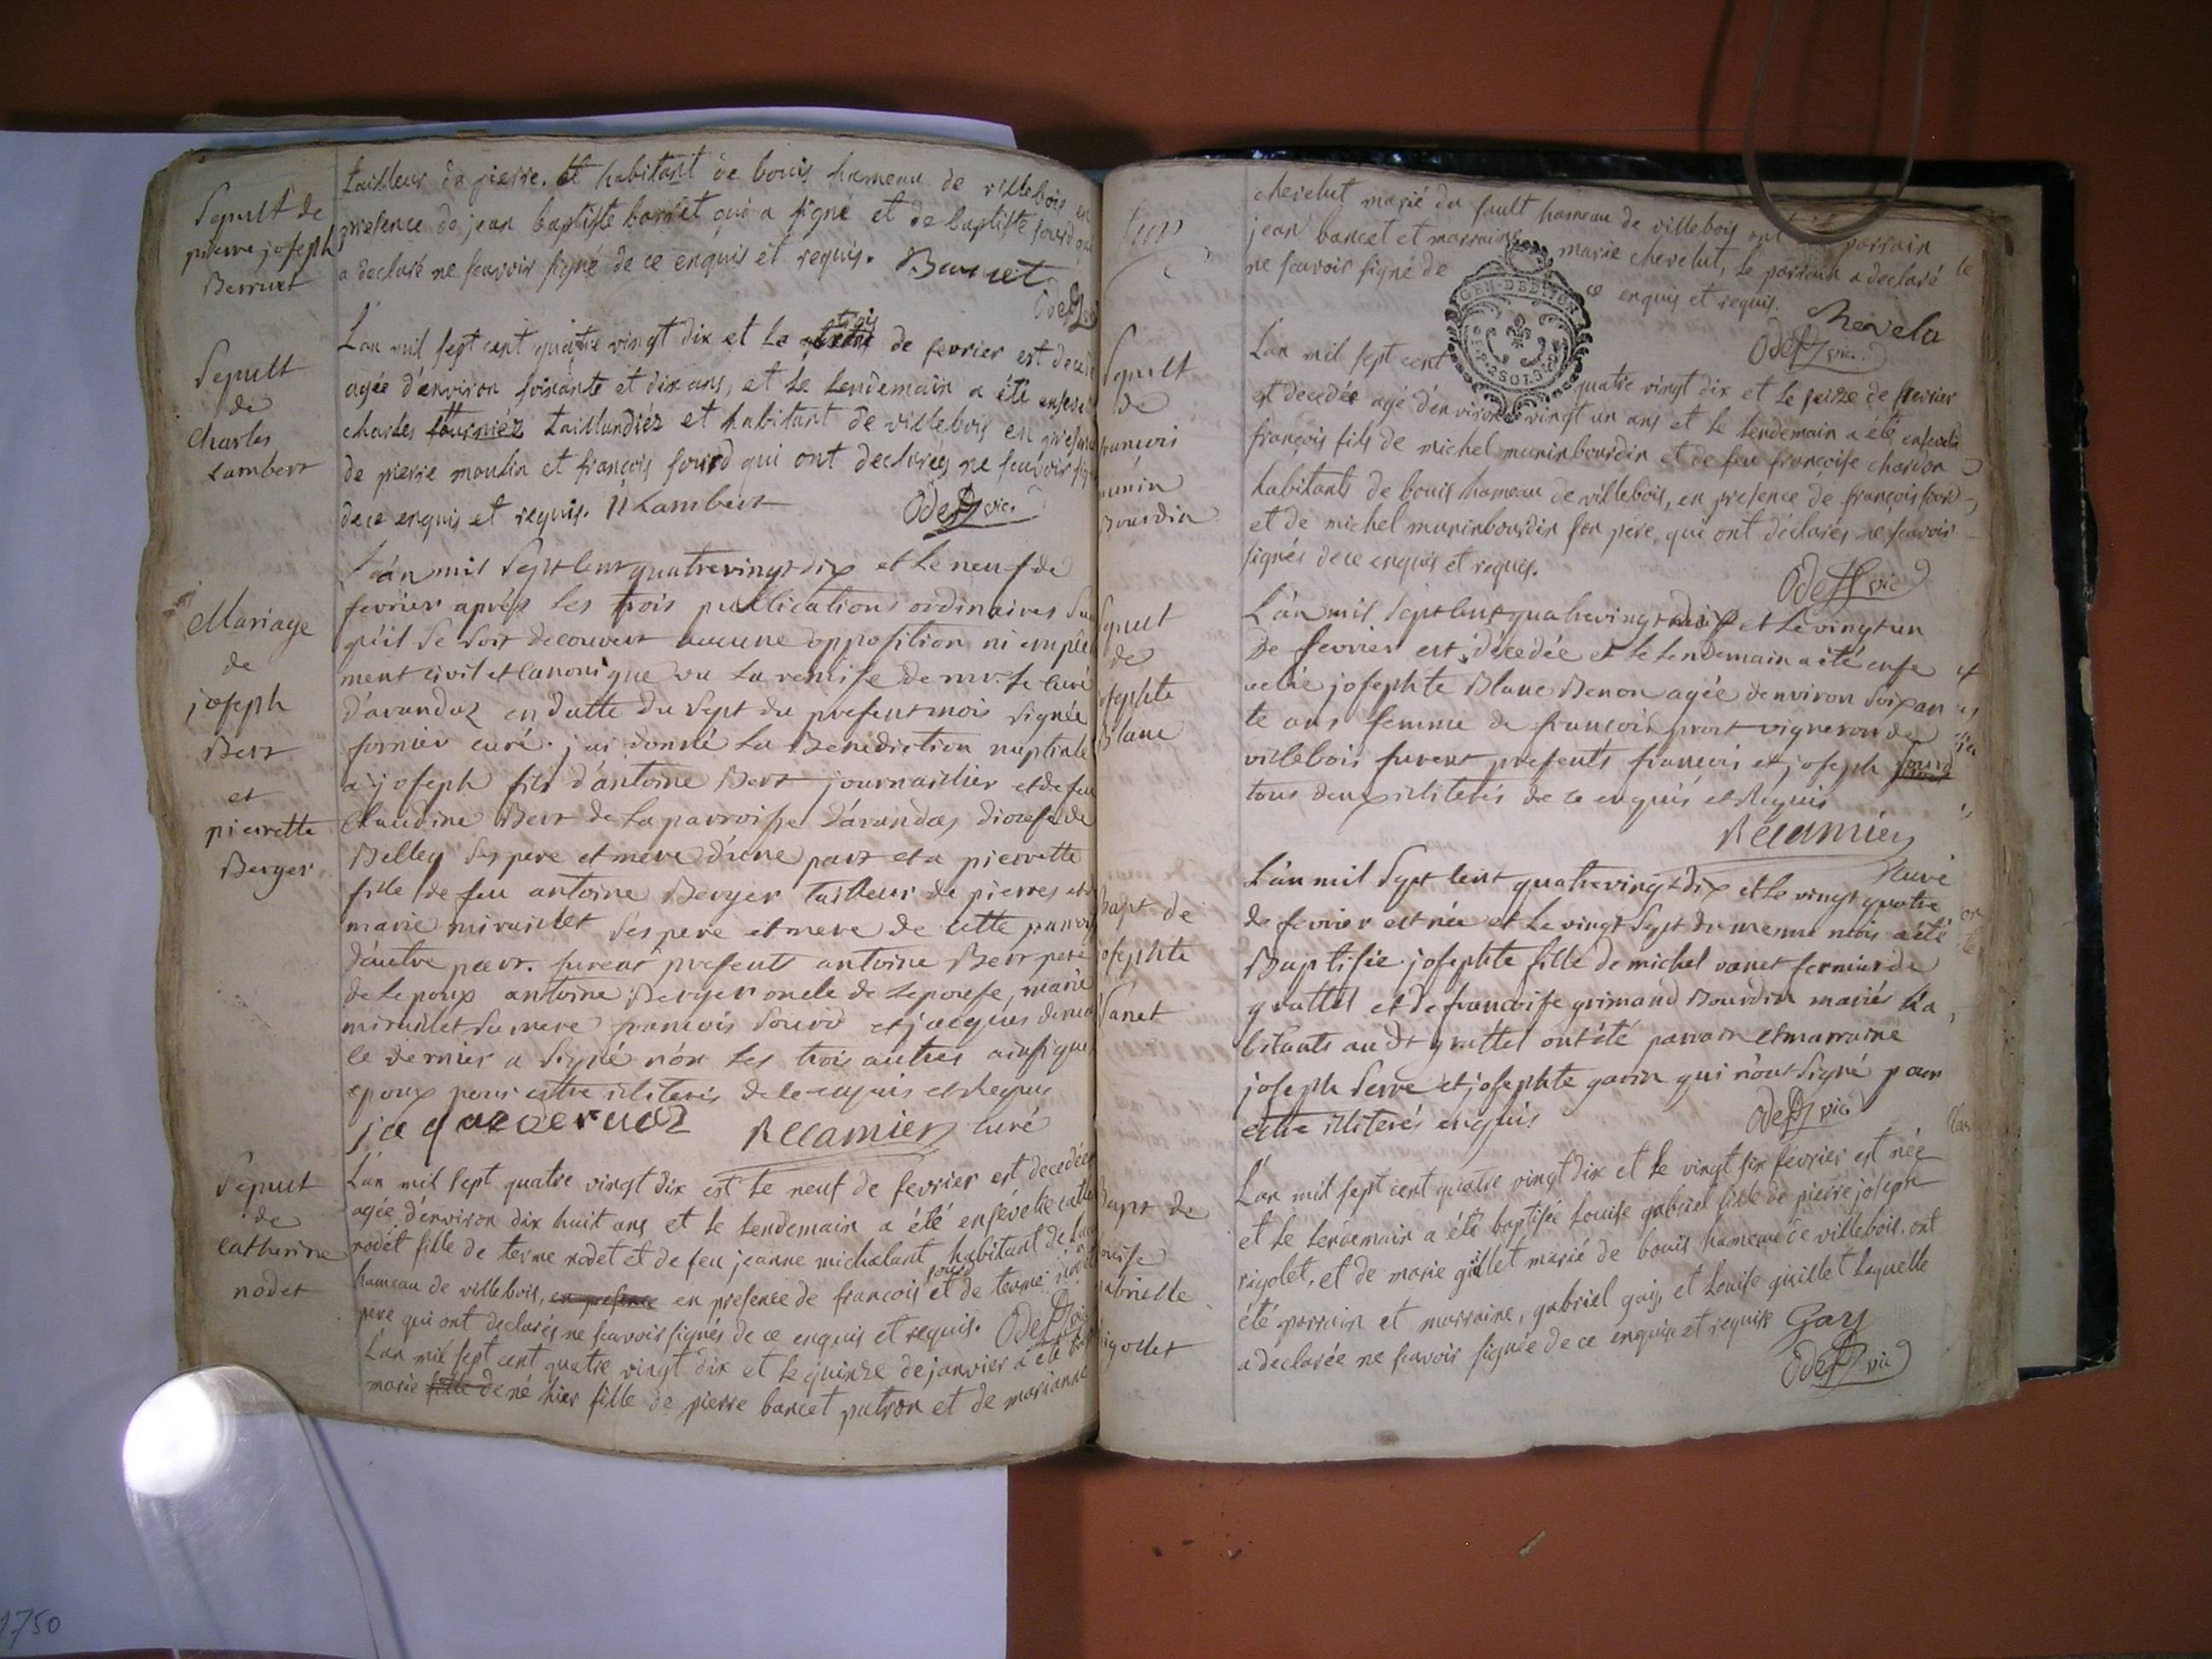 Sepult de
pierre joseph
Berruet
tailleur de pierre. et habitant de bouis hameau de villebois en
presence de jean baptiste barset qui a signé et de baptiste sourd qui
a declaré ne scavoir signé de ce enquis et requis. Barret
Odet
Sepult
de
Charles
Lambert
L'an mil sept cent quatre vingt dix et le trois de fevrier est decedé
agée d'environ soixante et dix ans, et le lendemain a été enseveli
charles taillandiéz et habitant de villebois en presence
de pierre moulin et françois sourd qui ont declarés ne scavoir
de ce enquis et requis. Lambert Odet vic.
Mariage
de
joseph
Bert
et
pierrette
Berger
L'an mil sept cent quatre vingt dix et le neuf de
fevrier aprés les trois publications ordinaires
qu'il se soit decouvert aucune opposition ni empêc
ment civil et canonique vu la remise de mr. le curé
d'arandaz en datte du sept du present mois signée
fornier curé. j'ai donné la Benediction nuptiale
a joseph fils d'antoine Bert journaillier et de feu
Claudine Bert de la parroisse d'arandas diocese de
Belley ses pere et mere d'une part et a pierrette
fille de feu antoine Berger tailleur de pierres et
marie miraillet ses pere et mere de cette parroi
d'autre part. furent presents antoine Bert pere
de l'epoux antoine Berger oncle de l'epouse, marie
miraillet sa mere francois Sourd et jacques deruaz
le dernier a signé non les trois autres ainsi que
epoux pour estre illiterés de ce enquis et Requis
jacque deruaz Recamier curé
Sepult
de
catherine
nodet
L'an mil sept quatre vingt dix est le neuf de fevrier est decedée
agée d'environ dix huit ans et le lendemain a été ensévélie cathe
rodet fille de terme rodet et de feu jeanne michelant habitant de
hameau de villebois, en presence en presence de francois sourd et de terme
pere qui ont declarés ne scavoir signés de ce enquis et requis. Odet vic
L'an mil sept cent quatre vingt dix et le quinze de janvier a été
marie fille de né hier fille de pierre bancet patron et de marianne
chevelut marié du sault hameau de villebois ont été parrain
jean bancet et marraine marie chevelut, le parrain a declaré
ne scavoir signé de ce enquis et requis. Chevelu
Odet vic.
GEN·DEBITOR
2 SOLS
Sepult
de
francois
munin
Bourdin
L'an mil sept cent quatre vingt dix et le seize de fevrier
est decedée agé d'environ vingt un ans et le lendemain a été enseveli
françois fils de michel muninbourdin et de feu francoise chardon
habitants de bouis hameau de villebois, en presence de françois sourd
et de michel muninbourdin son pere, qui ont déclarés ne scavoir
signés de ce enquis et requis.
Odet vic
Sepult
de
josephte
Blanc
L'an mil sept cent quatre vingt dix et le vingt un
de fevrier est décédée et le lendemain a été ense
velie josephte Blanc Benon agée d'environ soixan
te ans femme de francois prost vigneron de
villebois furent presents francois et joseph sourd
tous deux illiterés de ce enquis et Requis
Recamier
Curé
Bapt de
josephte
Vanet
L'an mil sept cent quatre vingt dix et le vingt quatre
de fevrier est née et le vingt sept du meme mois a été
Baptisée josephte fille de michel vanet fermier de
grattel et de francoise grimand Bourdin mariés ha
bitants au dt grattel ont été parrain et marraine
joseph Serve et josephte garin qui n'ont signé pour
estre illiterés enquis Odet vic
Bapt de
Louise
gabrielle
rigollet
L'an mil sept cent quatre vingt dix et le vingt six fevrier est née
et le lendemain a été baptisée Louise gabriel fille de pierre joseph
rigolet, et de marie guillet marié de bouis hameau de villebois. ont
été parrain et marraine, gabriel gay, et Louise guillet laquelle
a declarée ne scavoir signée de ce enquise et requise Gay
Odet vic
1750